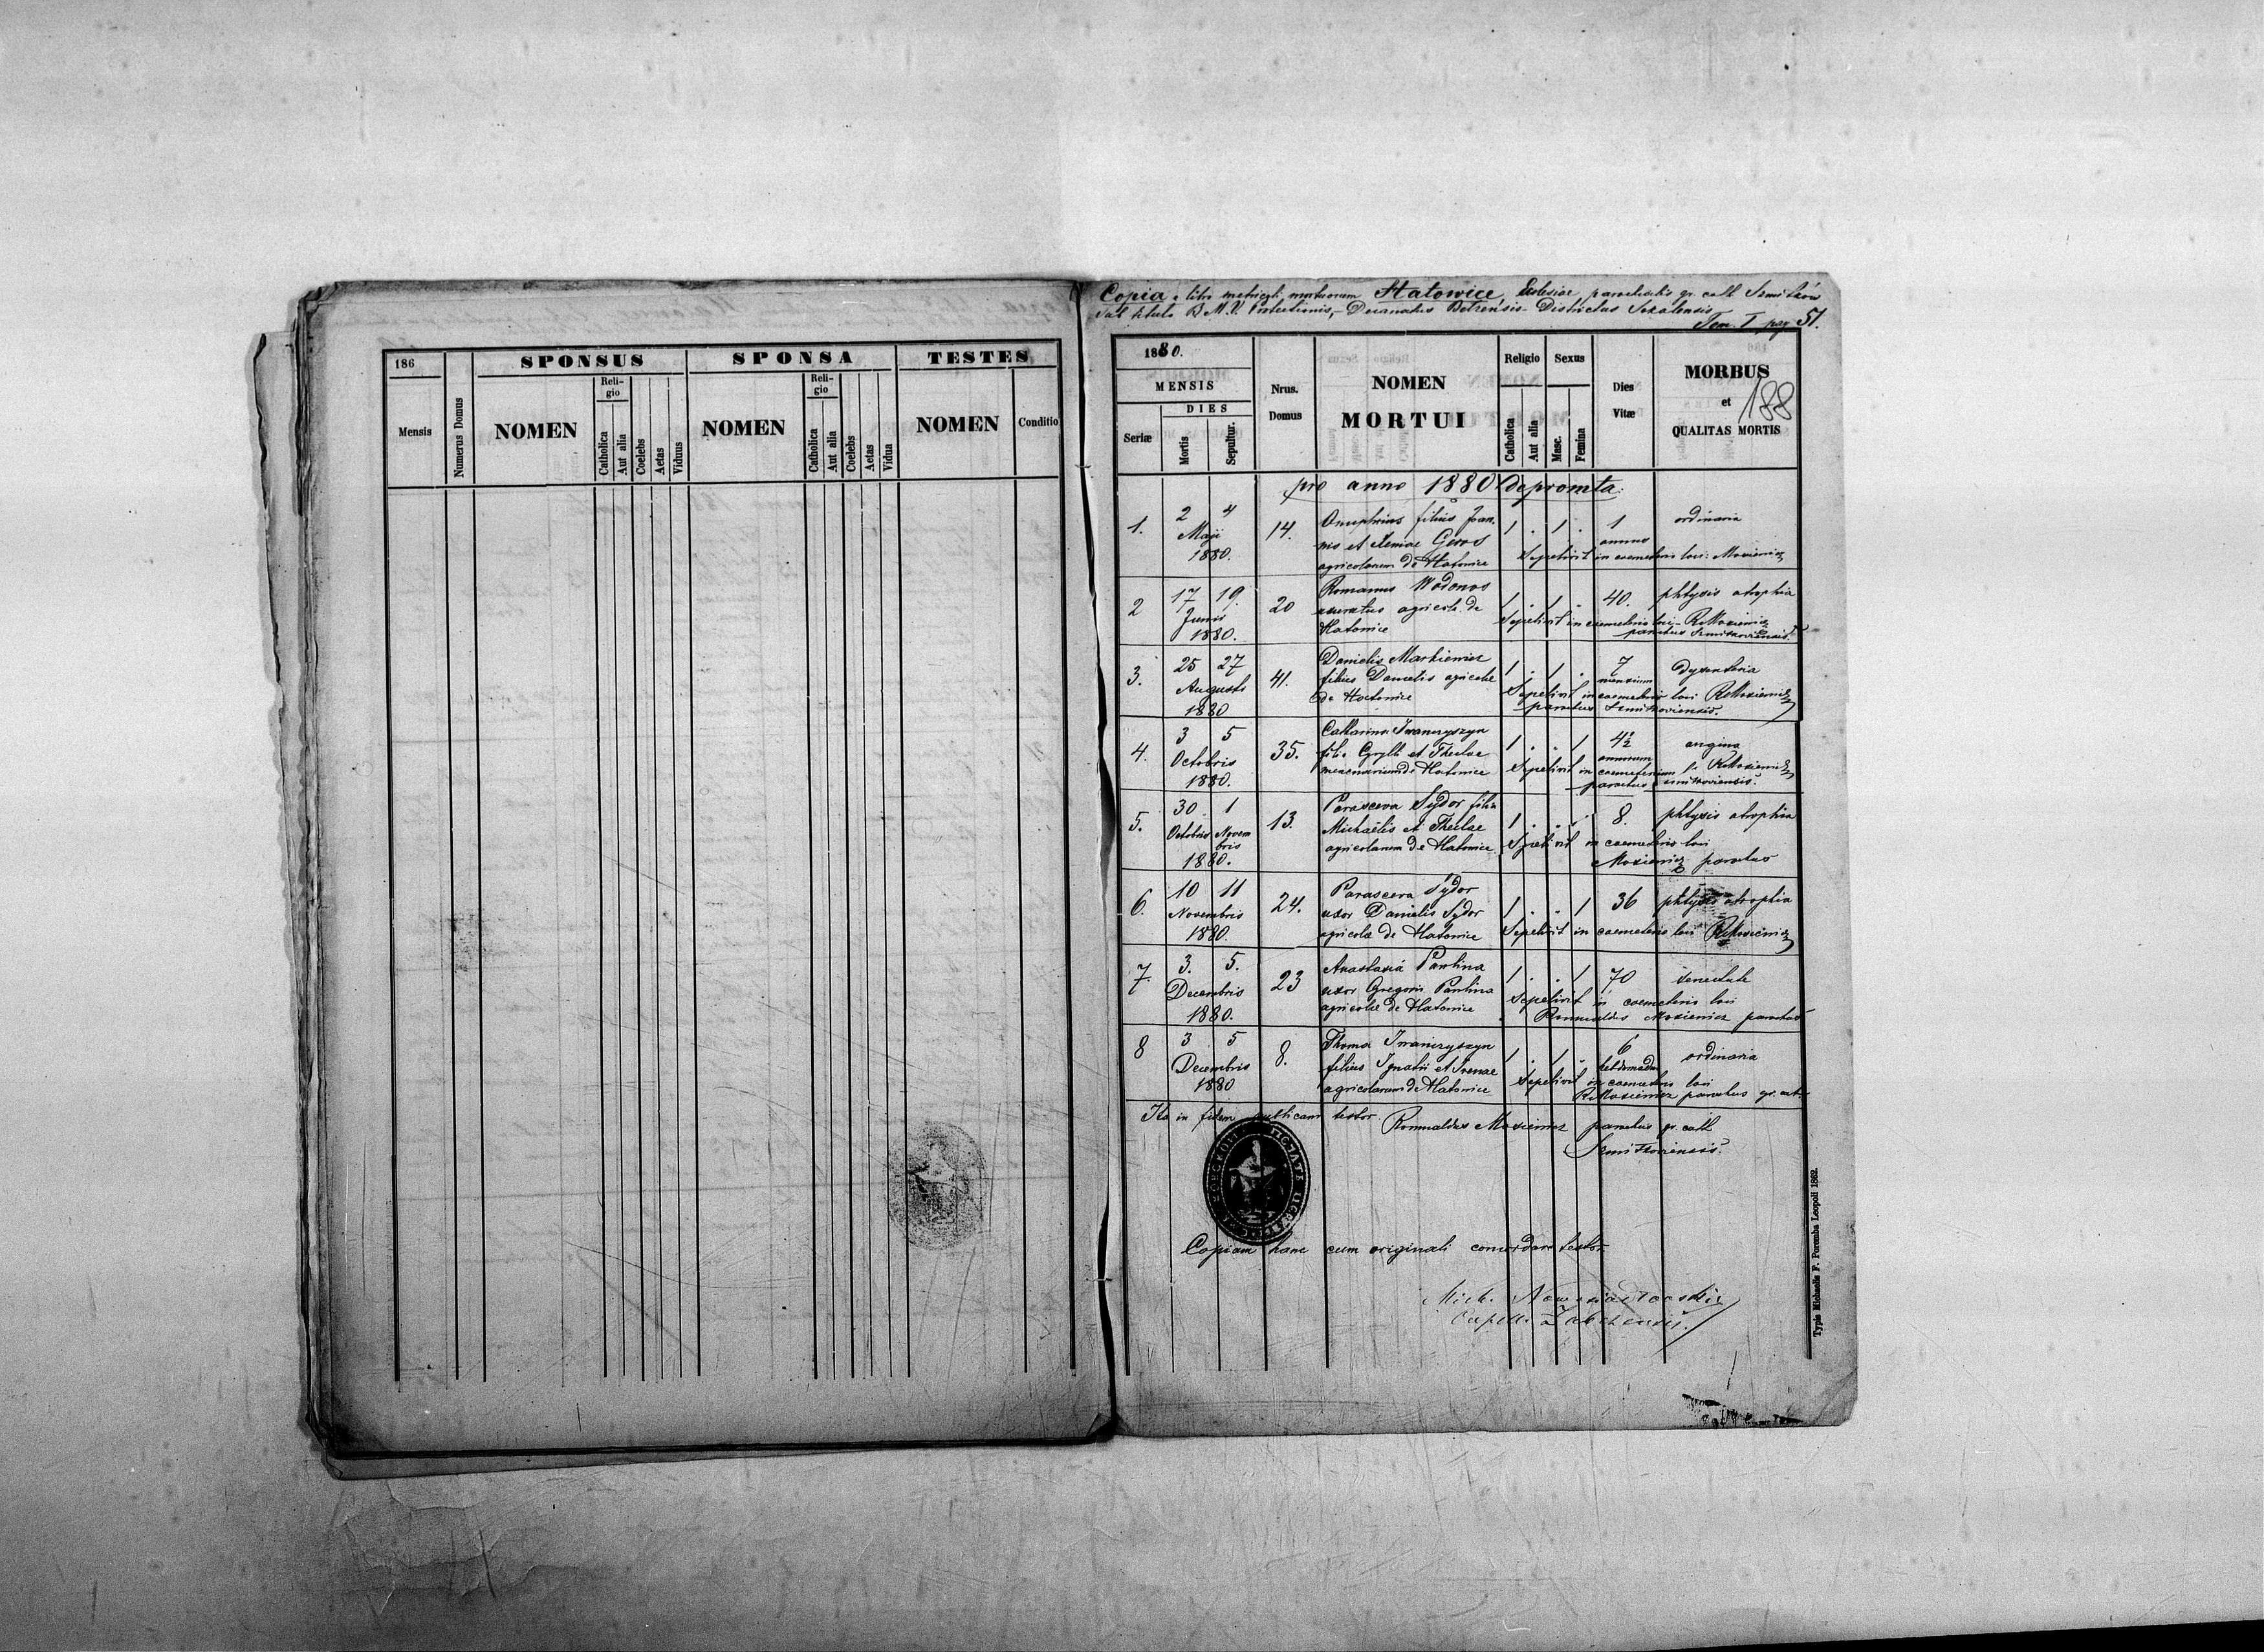 186
SPONSUS
SPONSA
TESTES
Mensis
Numerus Domus
NOMEN
Reli-
gio
Catholica
Aut alia
Coelebs
Aetas
Viduus
NOMEN
Reli-
gio
Catholica
Aut alia
Coelebs
Aetas
Vidua
NOMEN
Conditio
Copia e libro metricali mortuorum Hatowice, Eclesiae parochialis gr. cath
sub titulo B.M.V. Protectionis, - Decanatus Belzensis - Districtus Sokalensis
Tom. I pag 51.
1880.
MENSIS
DIES
Seriæ
Mortis
Sepultur.
Nrus.
Domus
NOMEN
MORTUI
Religio
Catholica
Aut alia
Sexus
Masc.
Femina
Dies
Vitæ
MORBUS
et
QUALITAS MORTIS
188
pro anno 1880 depromta:
1.
2 4
Maji
1880.
14.
Onuphrius filius Joan-
nis et Geros
agricolarum de Hatowice
1 . 1 .
1
annus
ordinaria
Sepelivit in coemeterio loci: Mosiewicz
2
17 19.
Junii
1880.
20
Romanus Wodonos
uxoratus agricola de
Hatowice
1 . 1 .
40.
phtysis atrophia
Sepelivit in coemeterio loci - R Mosiewicz
parochus
3.
25 27
Augusti
1880
41.
Danielis Markiewicz
filius Danielis agricolae
de Hatowice
1 . 1 .
7
mensium
dysenteria
Sepelivit in coemeterio loci R Mosiewicz
parochus
4.
3 5
Octobris
1880.
35.
Catharina Iwanczyszyn
filia Cyrylli et Theclae
de Hatowice
1 . . 1
4½
annorum
angina
Sepelivit in R Mosiewicz
parochus
5.
30. 1
Octobris Novem
bris
1880.
13.
Parasceva Sydor filia
Michaelis et Theclae
agricolarum de Hatowice
1 . . 1
8.
phtysis atrophia
Sepelivit in coemeterio loci
Mosiewicz parochus
6.
10 11
Novembris
1880.
24.
Parasceva Sydor
uxor Danielis Sydor
agricolae de Hatowice
1 . . 1
36
phtysis atrophia
Sepelivit in coemeterio loci R Mosiewicz
7.
3. 5.
Decembris
1880.
23
Anastasia Pawlina
uxor Gregorii Pawlina
agricolae de Hatowice
1 . . 1
70
senectute
Sepelivit in coemeterio loci
Romualdus Mosiewicz parochus
8
3 5
Decembris
1880
8.
Thoma Iwanczyszyn
filius Ignatii et Irenae
agricolarum de Hatowice
1 . 1 .
6
ordinaria
Sepelivit in coemeterio loci
R Mosiewicz parochus gr. cath
Ita in fidem publicam testor Romualdus Mosiewicz parochus gr. cath
Copiam hanc cum originali concordare testor
Mich.
Capell.
Typis Michaelis F. Poremba Leopoli 1862.